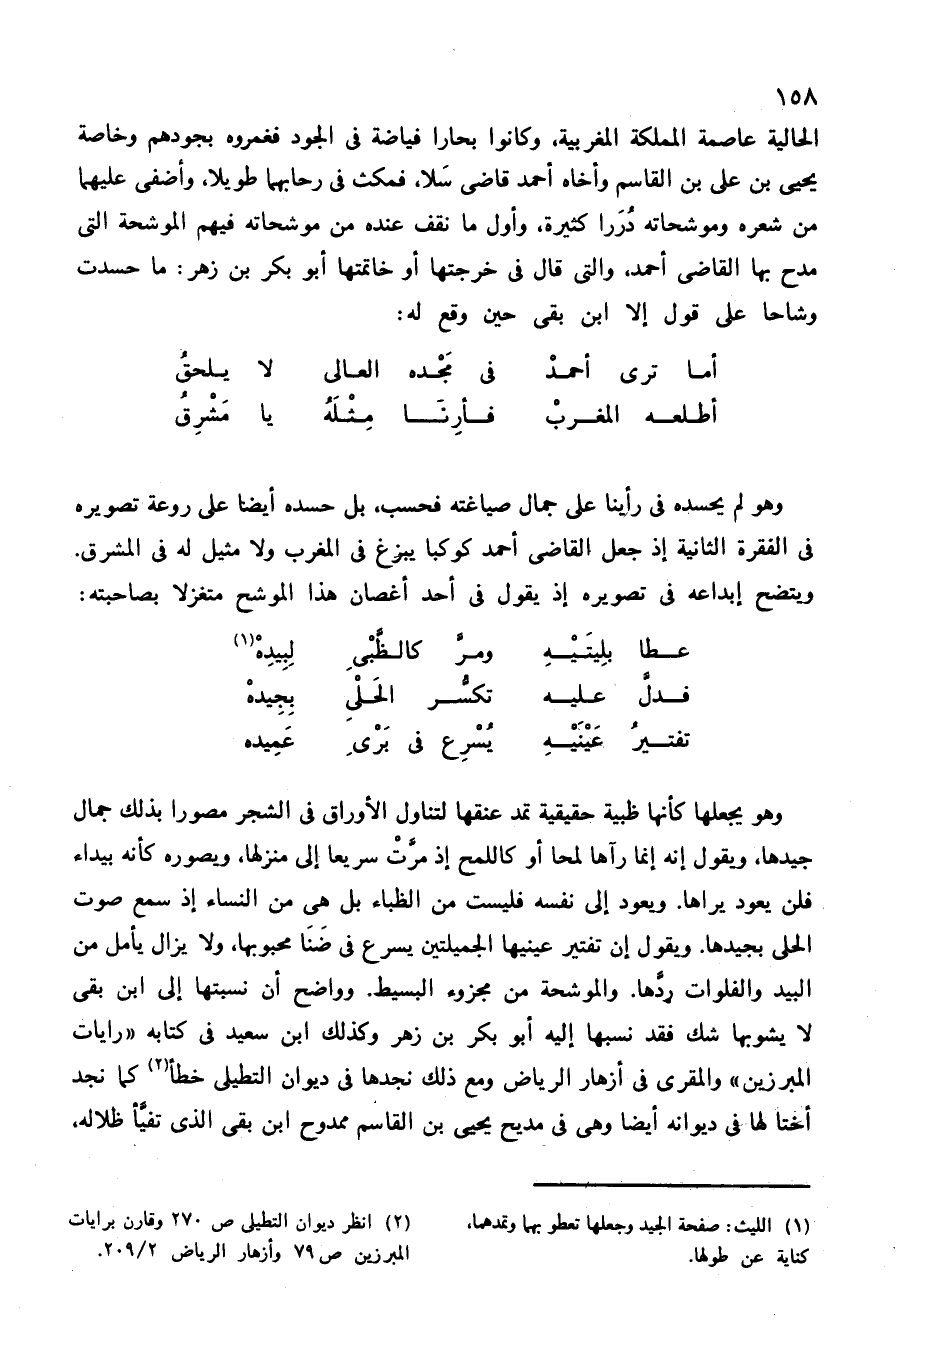 ١٥٨
الحالية عاصمة المملكة المغربية، وكانوا بحارا فياضة فى الجود فغمروه بجودهم وخاصة
يحيى بن على بن القاسم وأخاه أحمد قاضى سَلا، فمكث فى رحابها طويلا، وأضفى عليهما
من شعره وموشحاته دُرَرا كثيرة، وأول ما نقف عنده من موشحاته فيهم الموشحة التى
مدح بها القاضى أحمد، والتى قال فى خرجتها أو خاتمتها أبو بكر بن زهر: ما حسدت
وشاحا على قول إلا ابن بقى حين وقع له:
أما ترى أحمدْ فى مَجْده العالى لا يلحقُ
أطلعه المغربْ فأرِنَا مِثْلَهُ يا مَشْرِقُ
وهو لم يحسده فى رأينا على جمال صياغته فحسب، بل حسده أيضا على روعة تصويره
فى الفقرة الثانية إذ جعل القاضى أحمد كوكبا يبزغ فى المغرب ولا مثيل له فى المشرق.
ويتضح إبداعه فى تصويره إذ يقول فى أحد أغصان هذا الموشح متغزلا بصاحبته:
عطا بلِيتَيْهِ ومرَّ كالظَّبْىِ لبِيدِهْ(١)
فدلَّ عليه تكسُّر الحَلْىِ بِجِيدهْ
تفتيرُ عَيْنَيْهِ يُسْرِع فى بَرْىِ عَمِيده
وهو يجعلها كأنها ظبية حقيقية تمد عنقها لتناول الأوراق فى الشجر مصورا بذلك جمال
جيدها، ويقول إنه إنما رآها لمحا أو كاللمح إذ مرَّتْ سريعا إلى منزلها، ويصوره كأنه بيداء
فلن يعود يراها. ويعود إلى نفسه فليست من الظباء بل هى من النساء إذ سمع صوت
الحلى بجيدها. ويقول إن تفتير عينيها الجميلتين يسرع فى ضَنَا محبوبها، ولا يزال يأمل من
البيد والفلوات ردَّها. والموشحة من مجزوء البسيط. وواضح أن نسبتها إلى ابن بقى
لا يشوبها شك فقد نسبها إليه أبو بكر بن زهر وكذلك ابن سعيد فى كتابه «رايات
المبرزين» والمقرى فى أزهار الرياض ومع ذلك نجدها فى ديوان التطيلى خطأ(٢) كما نجد
أختا لها فى ديوانه أيضا وهى فى مديح يحيى بن القاسم ممدوح ابن بقى الذى تفيَّأ ظلاله،
(١) الليث: صفحة الجيد وجعلها تعطو بها وتمدهما،
كناية عن طولها.
(٢) انظر ديوان التطيلى ص ٢٧٠ وقارن برايات
المبرزين ص ٧٩ وأزهار الرياض ٢/ ٢٠٩.